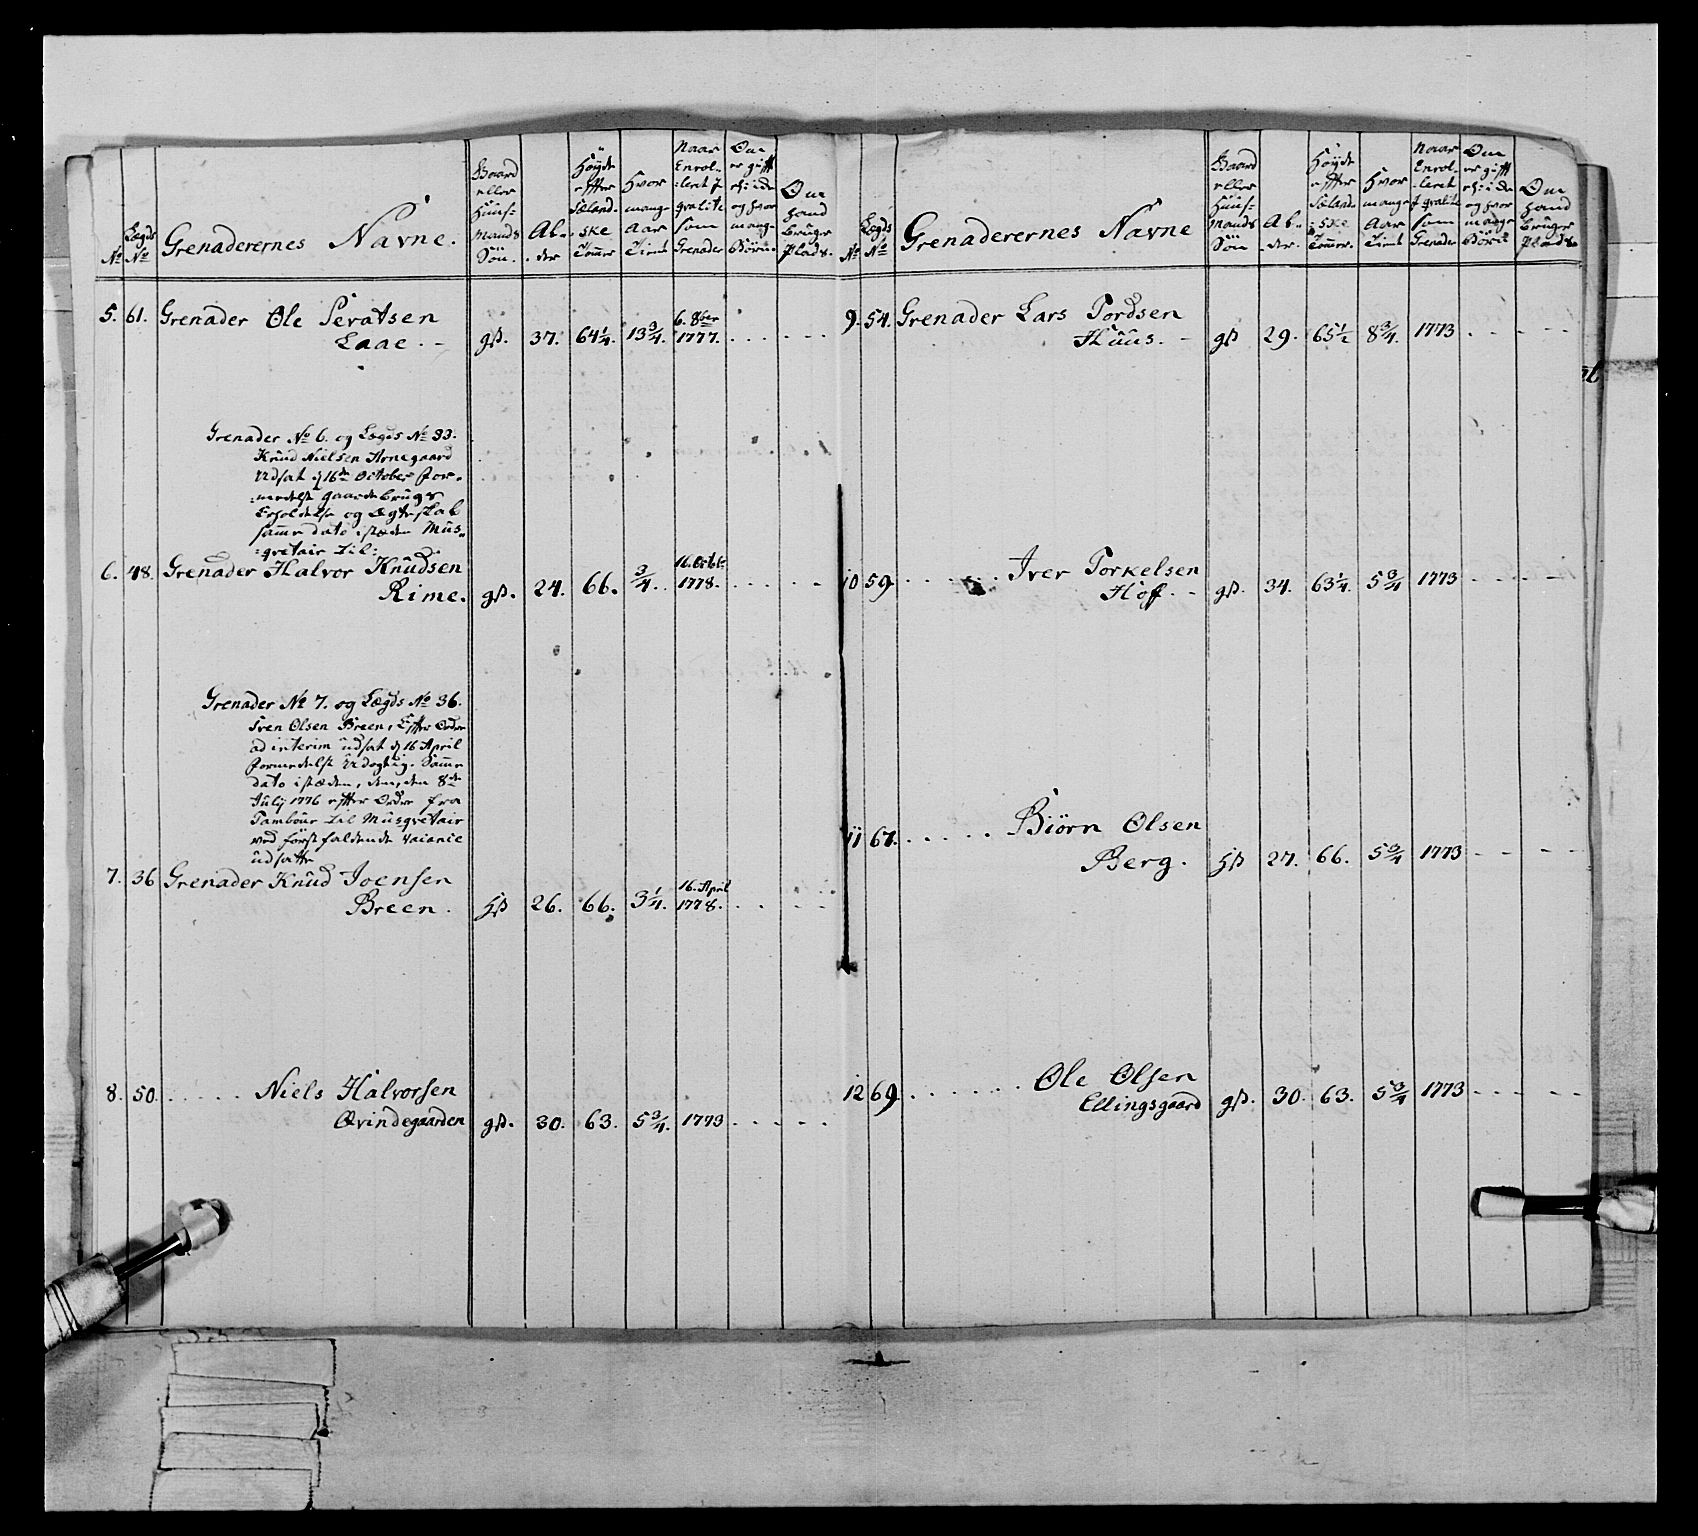 No
Lægds No
Grenaderernes Navne.
Gaard eller Huus- mands Søn.
Al- der
Høyde effter Siæland- ske Tommer
Hvor mange Aar Tient
Naar Enrol- leret & qvalite som Grenader
Om er gifft
og hvor mange Børn.
Om hand bruger Plads.
5. 61. Grenader Ole Peratsen
Laae. gß. 37. 64¼. 13¾. 6. 8ber 1777.
Grenader No 6. og Lægds No 33.
Knud Nielsen Arnegaard
Udsat d 16de October for-
medelst gaardebrugs
Erholdelse og Ægteskab
samme dato istæden Mus-
qvetair Lil:
6. 48. Grenader Halvor Knudsen
Rime. gß. 24. 66. ¾. 16. Octbr: 1778.
Grenader No 7. og Lægds No 36.
Sven Olsen Breen, Effter Ordre
ad interim udsat d 16 April
formedelst Udogtig. Samme
dato istæden, den, den 8de
July 1776 effter Ordre fra
Tambour til Musqvetair
ved først faldende Vacance
udsatte
7. 36 Grenader Knud Joensen
Breen. hß 26. 66. 3¼. 16. April 1778.
8. 50. Niels Halvorsen
Qvindegaarden gß. 30. 63. 5¾. 1773
No
Lægds No
Grenaderernes Navne
Gaard eller Huus- mands Søn
Al- der.
Høyde effter Siæland- ske Tommer.
Hvor mange Aar Tient
Naar Enrol- leret & qvalite som Grenader
Om er gifft
og hvor mange Børn
Om hand bruger Plads.
9. 54. Grenader Lars Tordsen
Huus. gß 29. 65½ 8¾. 1773
10 59. Iver Torkelsen
Hoff. gß. 34. 63¼. 5¾ 1773
11 67. Biörn Olsen
Berg. hß 27. 66. 5¾ 1773
12 69. Ole Olsen
Ellingsgaard gß. 30. 63. 5¾ 1773